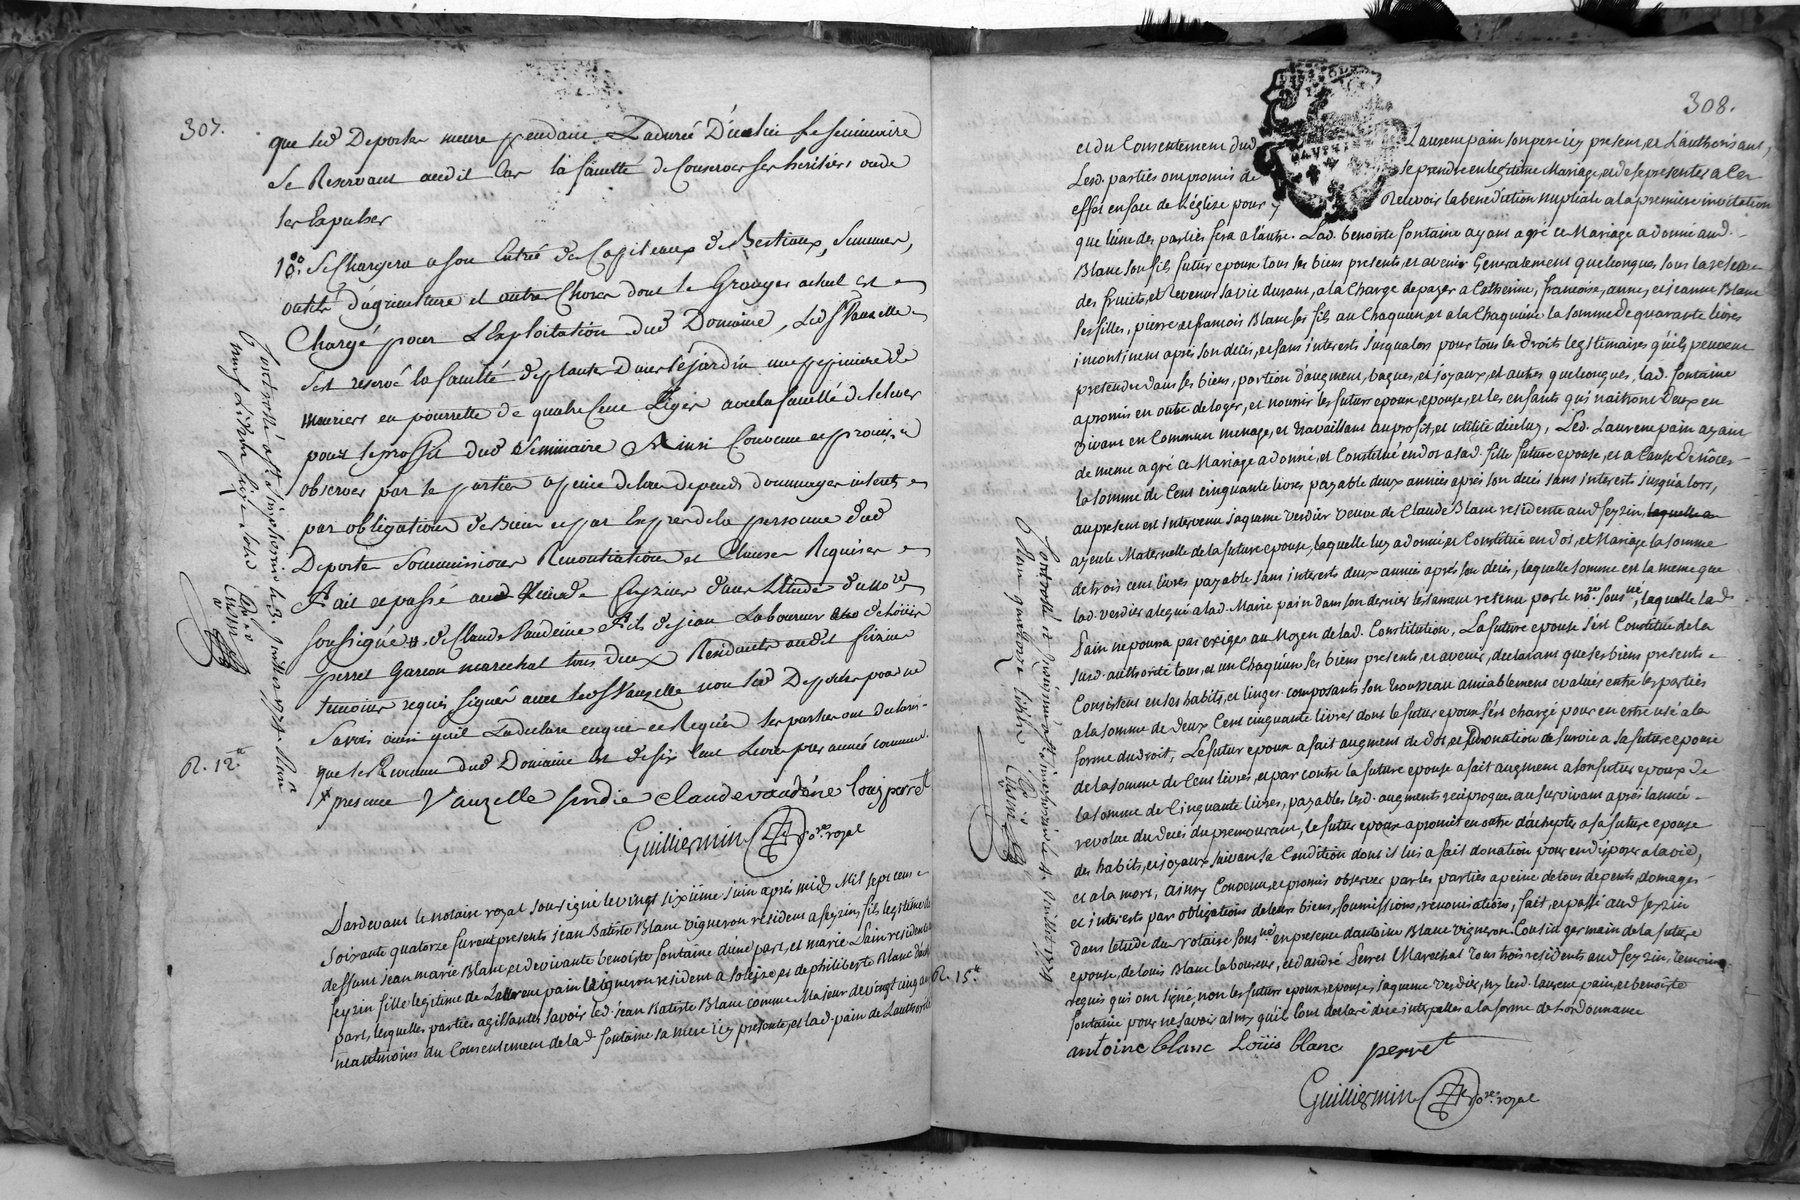 307.
que led Deporter meure pendant La durée D'icelui le seminaire
se Reservant audit Cas la faculté de Conserver ses heritiers ou de
les Expulser
10° Se Chargera a son Entrée de Capiteaux de Bestiaux, Semances,
outils d'agriculture et autre Choses dont le Granger actuel est
Chargé pour L'Exploitation dud Domaine, Led Sr Vauzelle
s'est reservé la faculté de planter Dans le jardin une pepiniere de
meuriers en pourrette de quatre Cent Liges avec la faculté de
pour le proffit dud Seminaire Ainsi Convenu et promis
observer par le parties a peine de tous depends dommages interets
par obligations de Biens et par Exprés de la personne dud
Deporter Soumissions Renontiations et Clauses Requises
Fait et passé aud Lieu de Seyzin dans L'Etude du No.re
soussigné de Claude Vaudeine Fils de jean Laboureur et de Loüis
perret Garcon marechal tous deux Residents audit feizin
temoins requis signés avec led Sr Vauzelle non led Deporter pour ne
savoir ainsi qu'il L'a declaré enquis et Requis les parties ont declaré
que le Revenu dud Domaine Est de six Cent Livres pres année commune
presence Vauzelle sindic claude vaudéne louis perret
Guilliermin No.re royal
R. 12.
Controllé a St simphorien le 3. Juillet 1774. Reçu
neuf Livres
Pardevant le notaire royal sousigné le vingt sixiéme juin aprés midy Mil sept cent
soixante quatorze furent presents jean Batiste Blanc vigneron resident a feyzin, fils legitime de
deffunt jean marie Blanc et de vivante benoiste fontaine d'une part, et marie Pain residente a
feyzin fille legitime de Laurent pain vigneron resident a Soleize, et de philiberte Blanc d'autre
part, lesquelles parties agissantes savoir led. jean Batiste Blanc comme Majeur de vingt cinq ans
neantmoins du Consentement de lad. fontaine sa mere icy presente, et lad. pain de L'authorité
308.
et du Consentement dud Laurent pain son pere icy present, et L'authorisant,
Lesd. parties ont promis de se prendre en legitime Mariage, et de se presenter a Cet
effet en face de L'église pour y Recevoir la benediction nuptiale a la premiere invitation
que l'une des parties fera a l'autre. Lad. benoiste fontaine ayant agré ce Mariage a donné aud.
Blanc son fils futur epoux tous ses biens presents, et avenir Generalement quelconques sous la reserve
des fruits, et revenus sa vie durant, a la charge de payer a Catherine, francoise, anne, et jeanne Blanc
ses filles, pierre et francois Blanc ses fils au Chaquun, et a la Chaquune la somme de quarante livres
incontinent aprés son decés, et sans interests jusqu'alors pour tous les droits legitimaires qu'ils peuvent
pretendre dans ses biens, portion d'augment, bagues, et joyaux, et autres quelconques, lad. fontaine
a promis en outre de loger, et nourrir les futurs epoux, epouse, et les enfants qui naitront d'eux en
vivant en Commun menage, et travaillant au profit, et utilité d'icelui, Led. Laurent pain ayant
de meme agré ce Mariage a donné, et Constitué en dot a lad. fille future epouse, et a Cause de nôces
la somme de Cent cinquante livres payable deux années aprés son decés sans interests jusqu'alors,
au present est intervenu jaqueme verdier veuve de Claude Blanc residente aud feyzin, laquelle a
ayeule Maternelle de la future epouse, laquelle luy a donné, et Constitué en dot, et Mariage la somme
de trois cent livres payable sans interests deux année aprés son decés, laquelle somme est la meme que
lad. verdier a legué a lad. Marie pain dans son dernier testament retenu par le no.re sous.né, laquelle lad.
Pain ne poura pas exiger au Moyen de lad. Constitution, La future epouse s'est Constitué de la
sus.d. authorité tous, et un Chaquun ses biens presents, et avenir, declarant que ses biens presents
Consistent en ses habits, et linges composants son trousseau amiablement evalués entre les parties
a la somme de deux Cent cinquante livres dont le futur epoux s'est chargé pour en estre usé a la
forme du droit, Le futur epoux a fait augment de dot, et Donation de survie a sa future epouse
de la somme de Cent livres, et par contre la future epouse a fait augment a son futur epoux de
la somme de Cinquante livres, payables lesd. augments reciproques au survivant aprés l'année
revolue du decés du premourant, le futur epoux a promit en outre d'achepter a sa future epouse
des habits, et joyaux suivant sa Condition dont il lui a fait donation pour en disposer a la vie,
et a la mort, ainsy Convenu, et promis observer par les parties a peine de tous depents, domages
et interests par obligations de leurs biens, soumissions, renontiations, fait, et passé aud feyzin
dans l'etude du Notaire sous.né en presence d'antoine Blanc vigneron Cousin germain de la future
epouse, de louis Blanc laboureur, et d'andré Perret Marechal tous trois residents aud feyzin, temoins
requis qui ont signé, non les futurs epoux, epouse, jaqueme verdier, ny led. laurent pain, et benoiste
fontaine pour ne savoir ainsy qu'il l'ont declaré de ce interpellés a la forme de Lordonnance
antoine blanc Loüis blanc perret
Guilliermin No.re royal
R. 15.